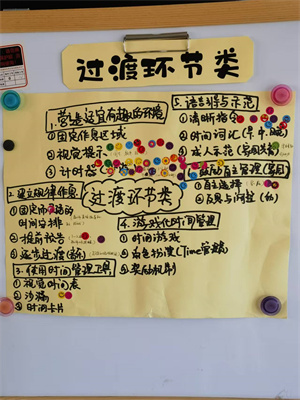 过渡环节类
1.营造适宜有趣的环境
①固定作息区域
②视觉提示
③计时器
2.建立规律作息
①固定而灵活的
时间安排
②提前预告
③逐步过渡
3.使用时间管理工具
①视觉时间表
②沙漏
③时间卡片
过渡环节类
4.游戏化时间管理
①时间游戏
②角色扮演(Time管理)
③奖励机制
5.语言引导与示范
①清晰指令
②时间词汇(早.中.晚)
③成人示范
6.鼓励自主管理
①自主选择
②反思与讨论